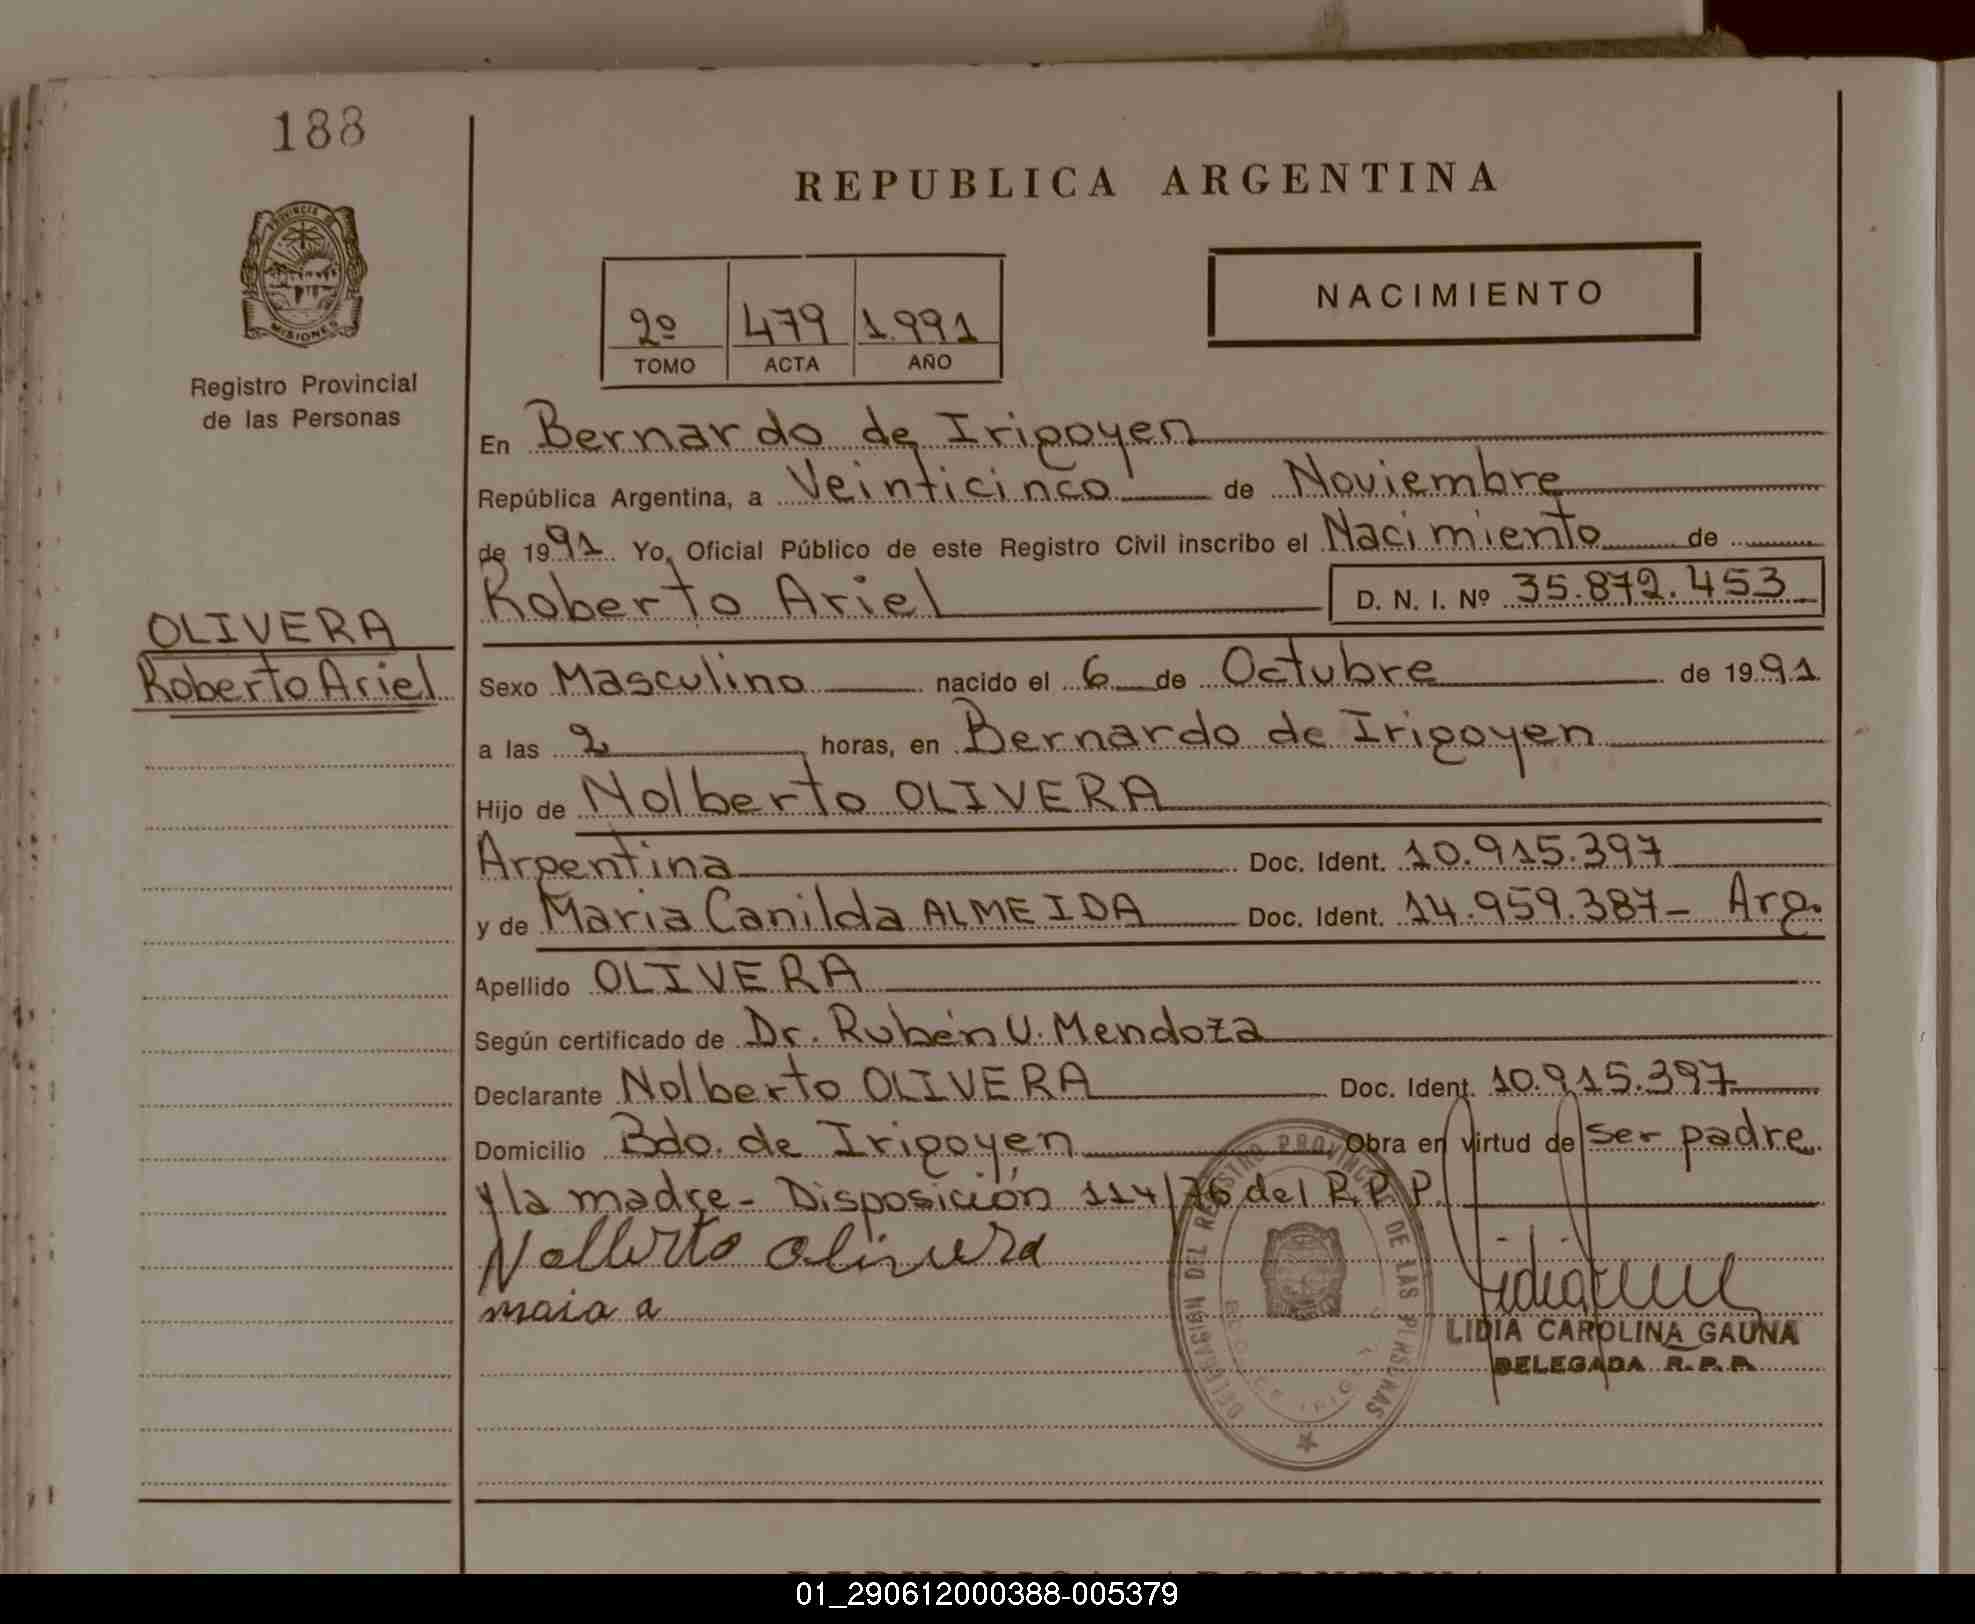 188
REPUBLICA ARGENTINA
PROVINCIA DE
MISIONES
Registro Provincial
de las Personas
2º 479 1.991
TOMO ACTA AÑO
NACIMIENTO
En Bernardo de Irigoyen
República Argentina, a Veinticinco de Noviembre
de 1991 Yo, Oficial Público de este Registro Civil inscribo el Nacimiento de
Roberto Ariel D. N. I. Nº 35.872.453
OLIVERA
Roberto Ariel
Sexo Masculino nacido el 6 de Octubre de 1991
a las 2 horas, en Bernardo de Irigoyen
Hijo de Nolberto OLIVERA
Argentina Doc. Ident. 10.915.397
y de Maria Canilda ALMEIDA Doc. Ident. 14.959.387- Arg.
Apellido OLIVERA
Según certificado de Dr. Rubén U. Mendoza
Declarante Nolberto OLIVERA Doc. Ident. 10.915.397
Domicilio Bdo. de Irigoyen Obra en virtud de ser padre
y la madre- Disposición 114/76 del R.P.P.
Nolberto Olivera
maia a
DELEGACION DEL REGISTRO PROVINCIAL DE LAS PERSONAS
LIDIA CAROLINA GAUNA
DELEGADA R.P.P.
REPUBLICA ARGENTINA
01_290612000388-005379